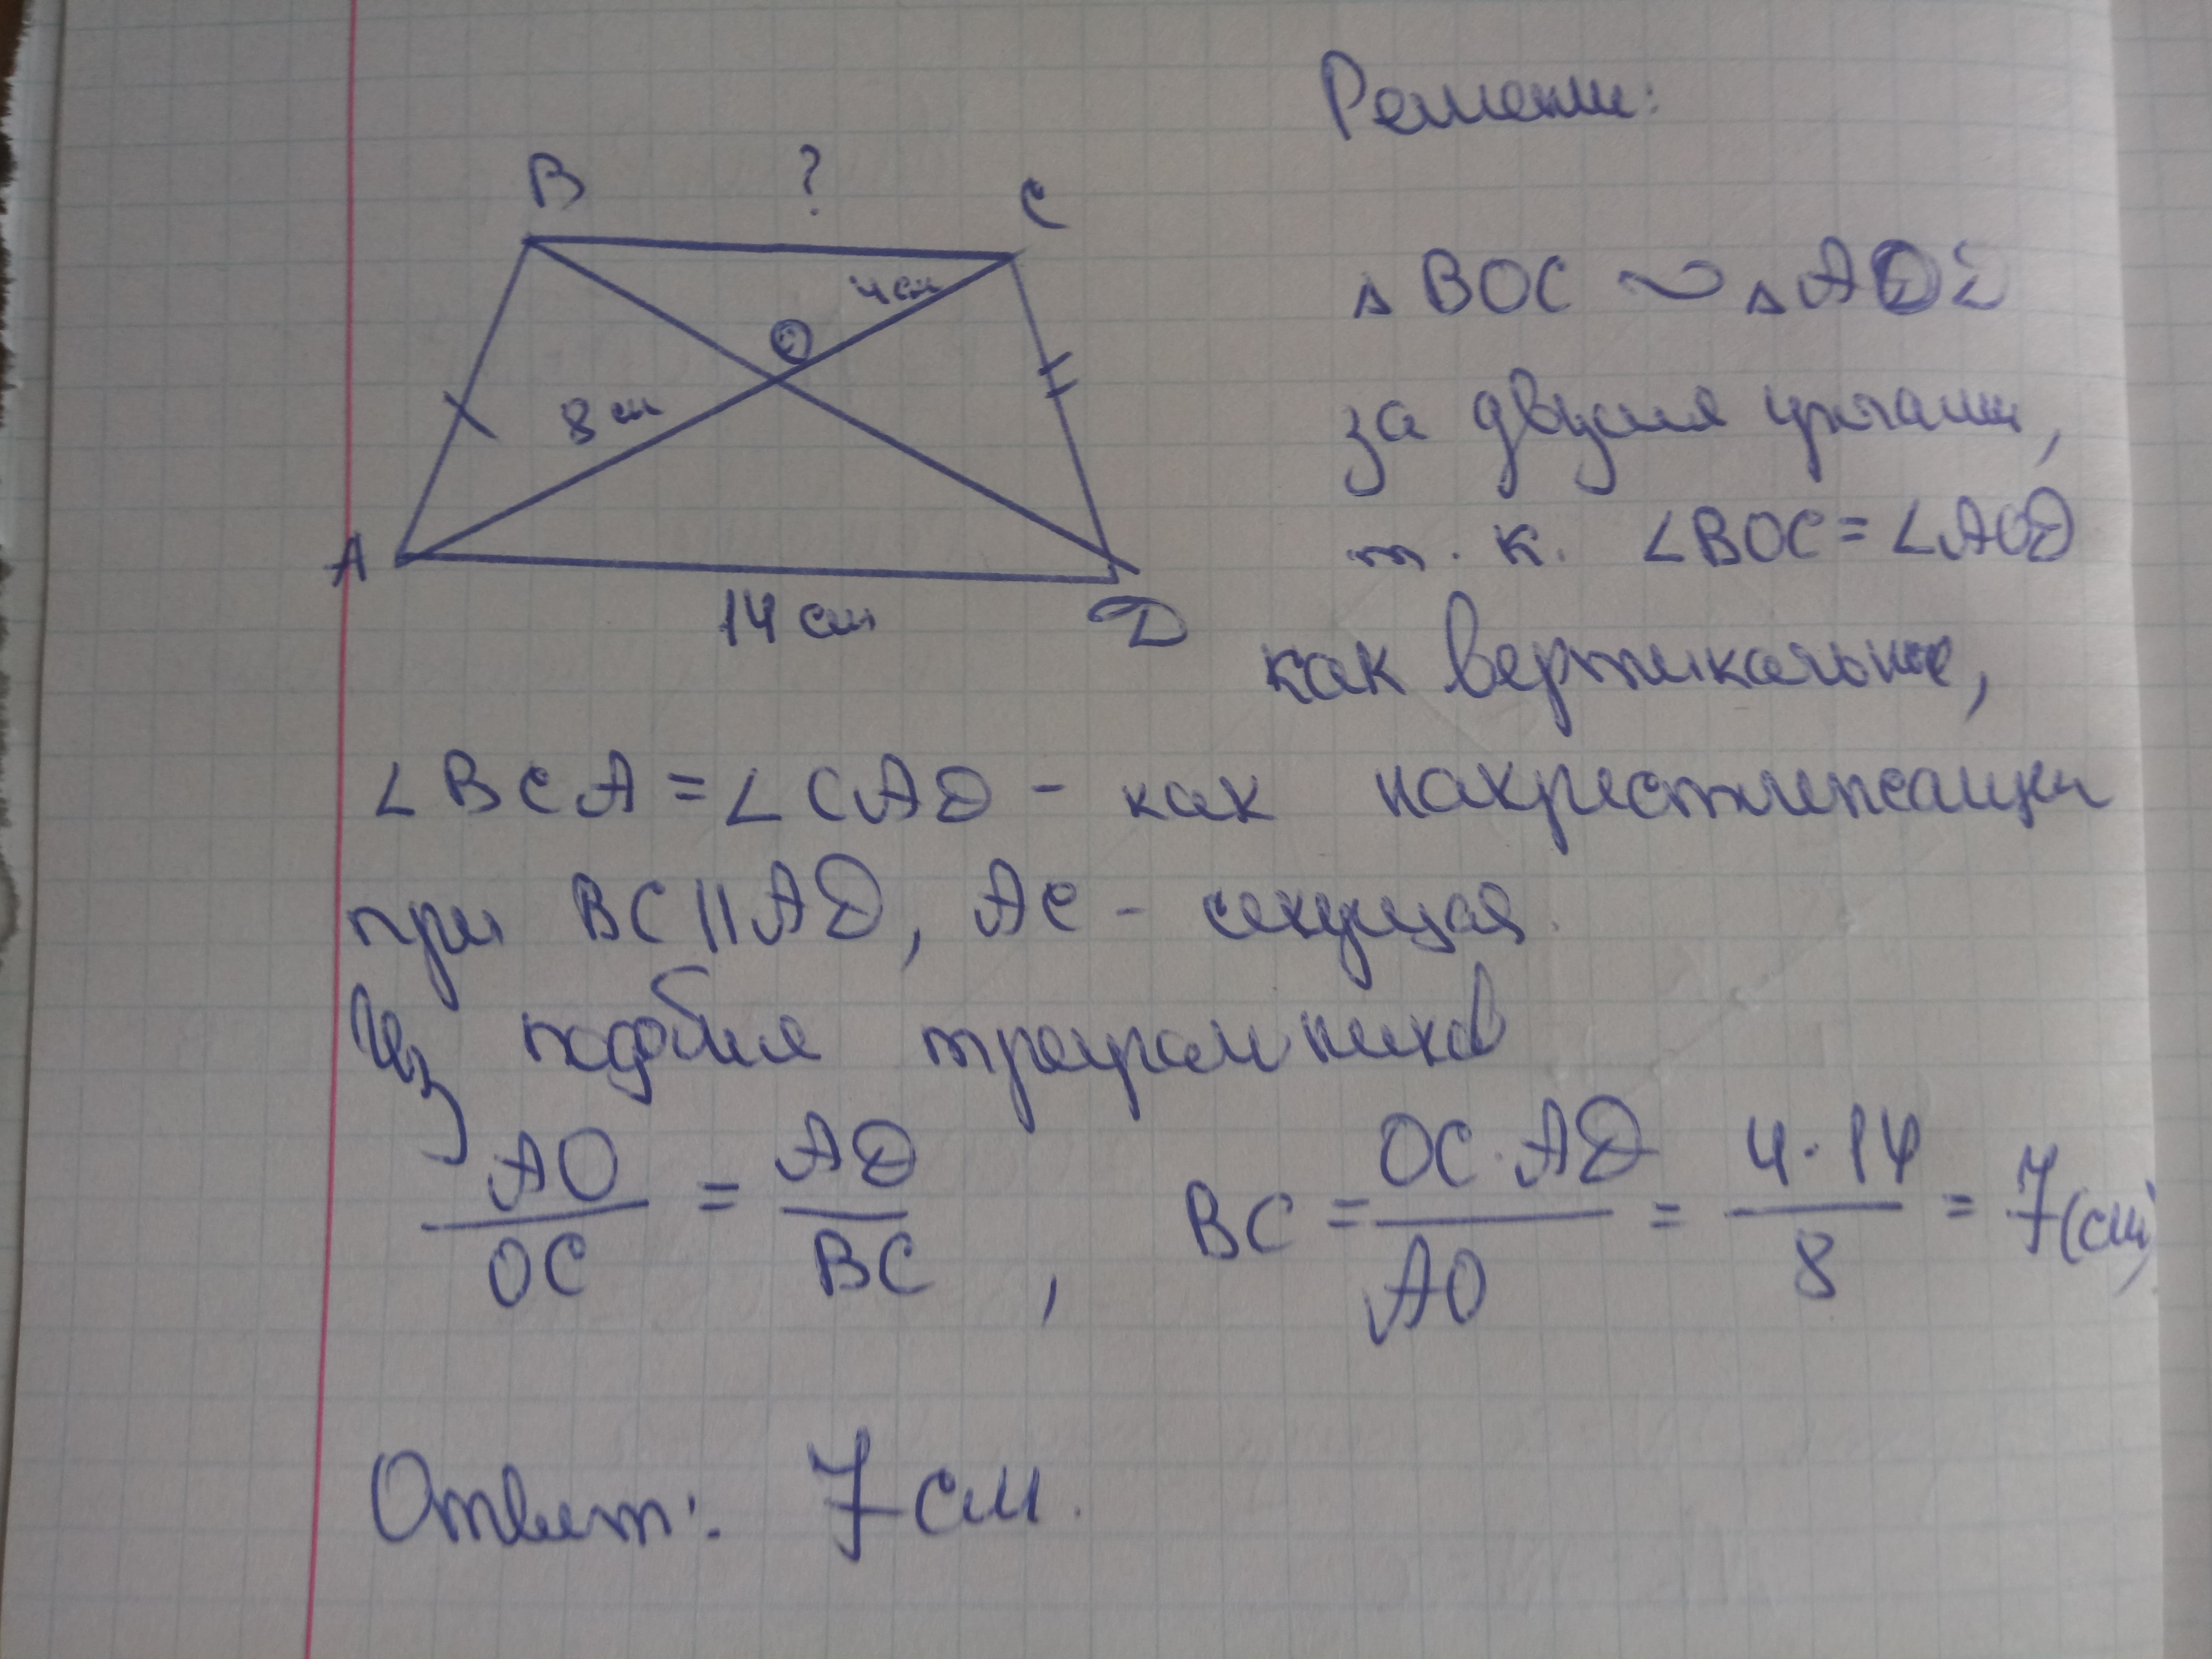 Решение:
B ? C
4см
O
8см
A D
14 см
△ BOC ∼ △ AOD
за двумя углами,
т. к. ∠BOC = ∠AOD
как вертикальные,
∠BCA = ∠CAD - как накрест лежащие
при BC || AD, AC - секущая.
Из подобия треугольников
AO/OC = AD/BC , BC = OC·AD/AO = 4·14/8 = 7(см)
Ответ: 7 см.